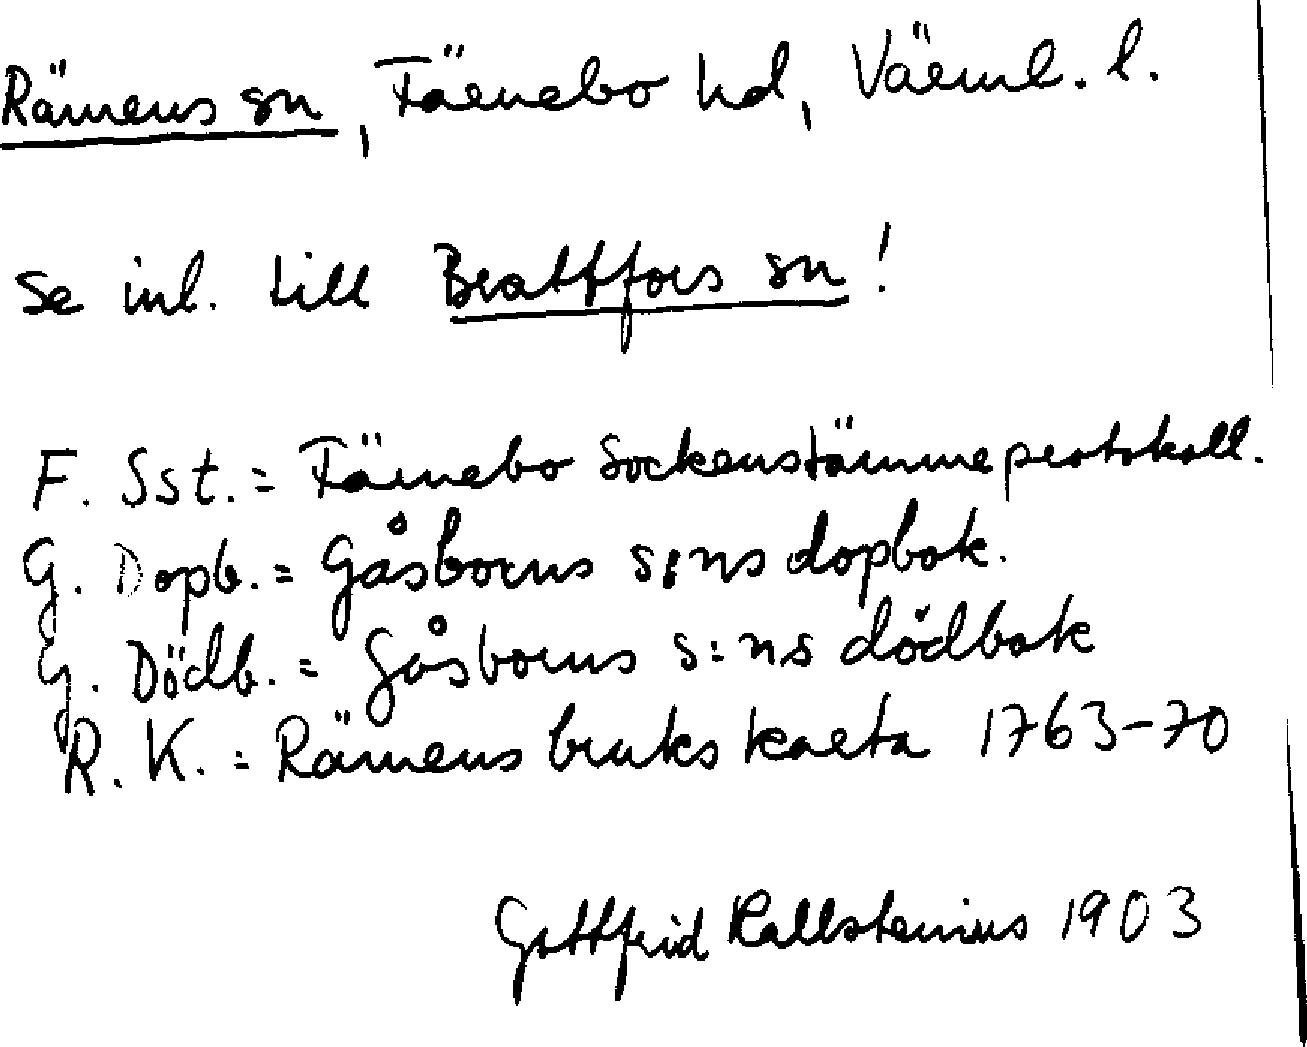 Rämens sn, Färnebo hd, Värml. l.
Se inl. till Brattfors sn!
F. Sst. = Färnebo Sockenstämmeprotokoll.
G. Dopb. = Gåsborns s:ns dopbok.
G. Dödb. = Gåsborns s:ns dödbok
R. K. = Rämens bruks karta 1763-70
Gottfrid Kallstenius 1903